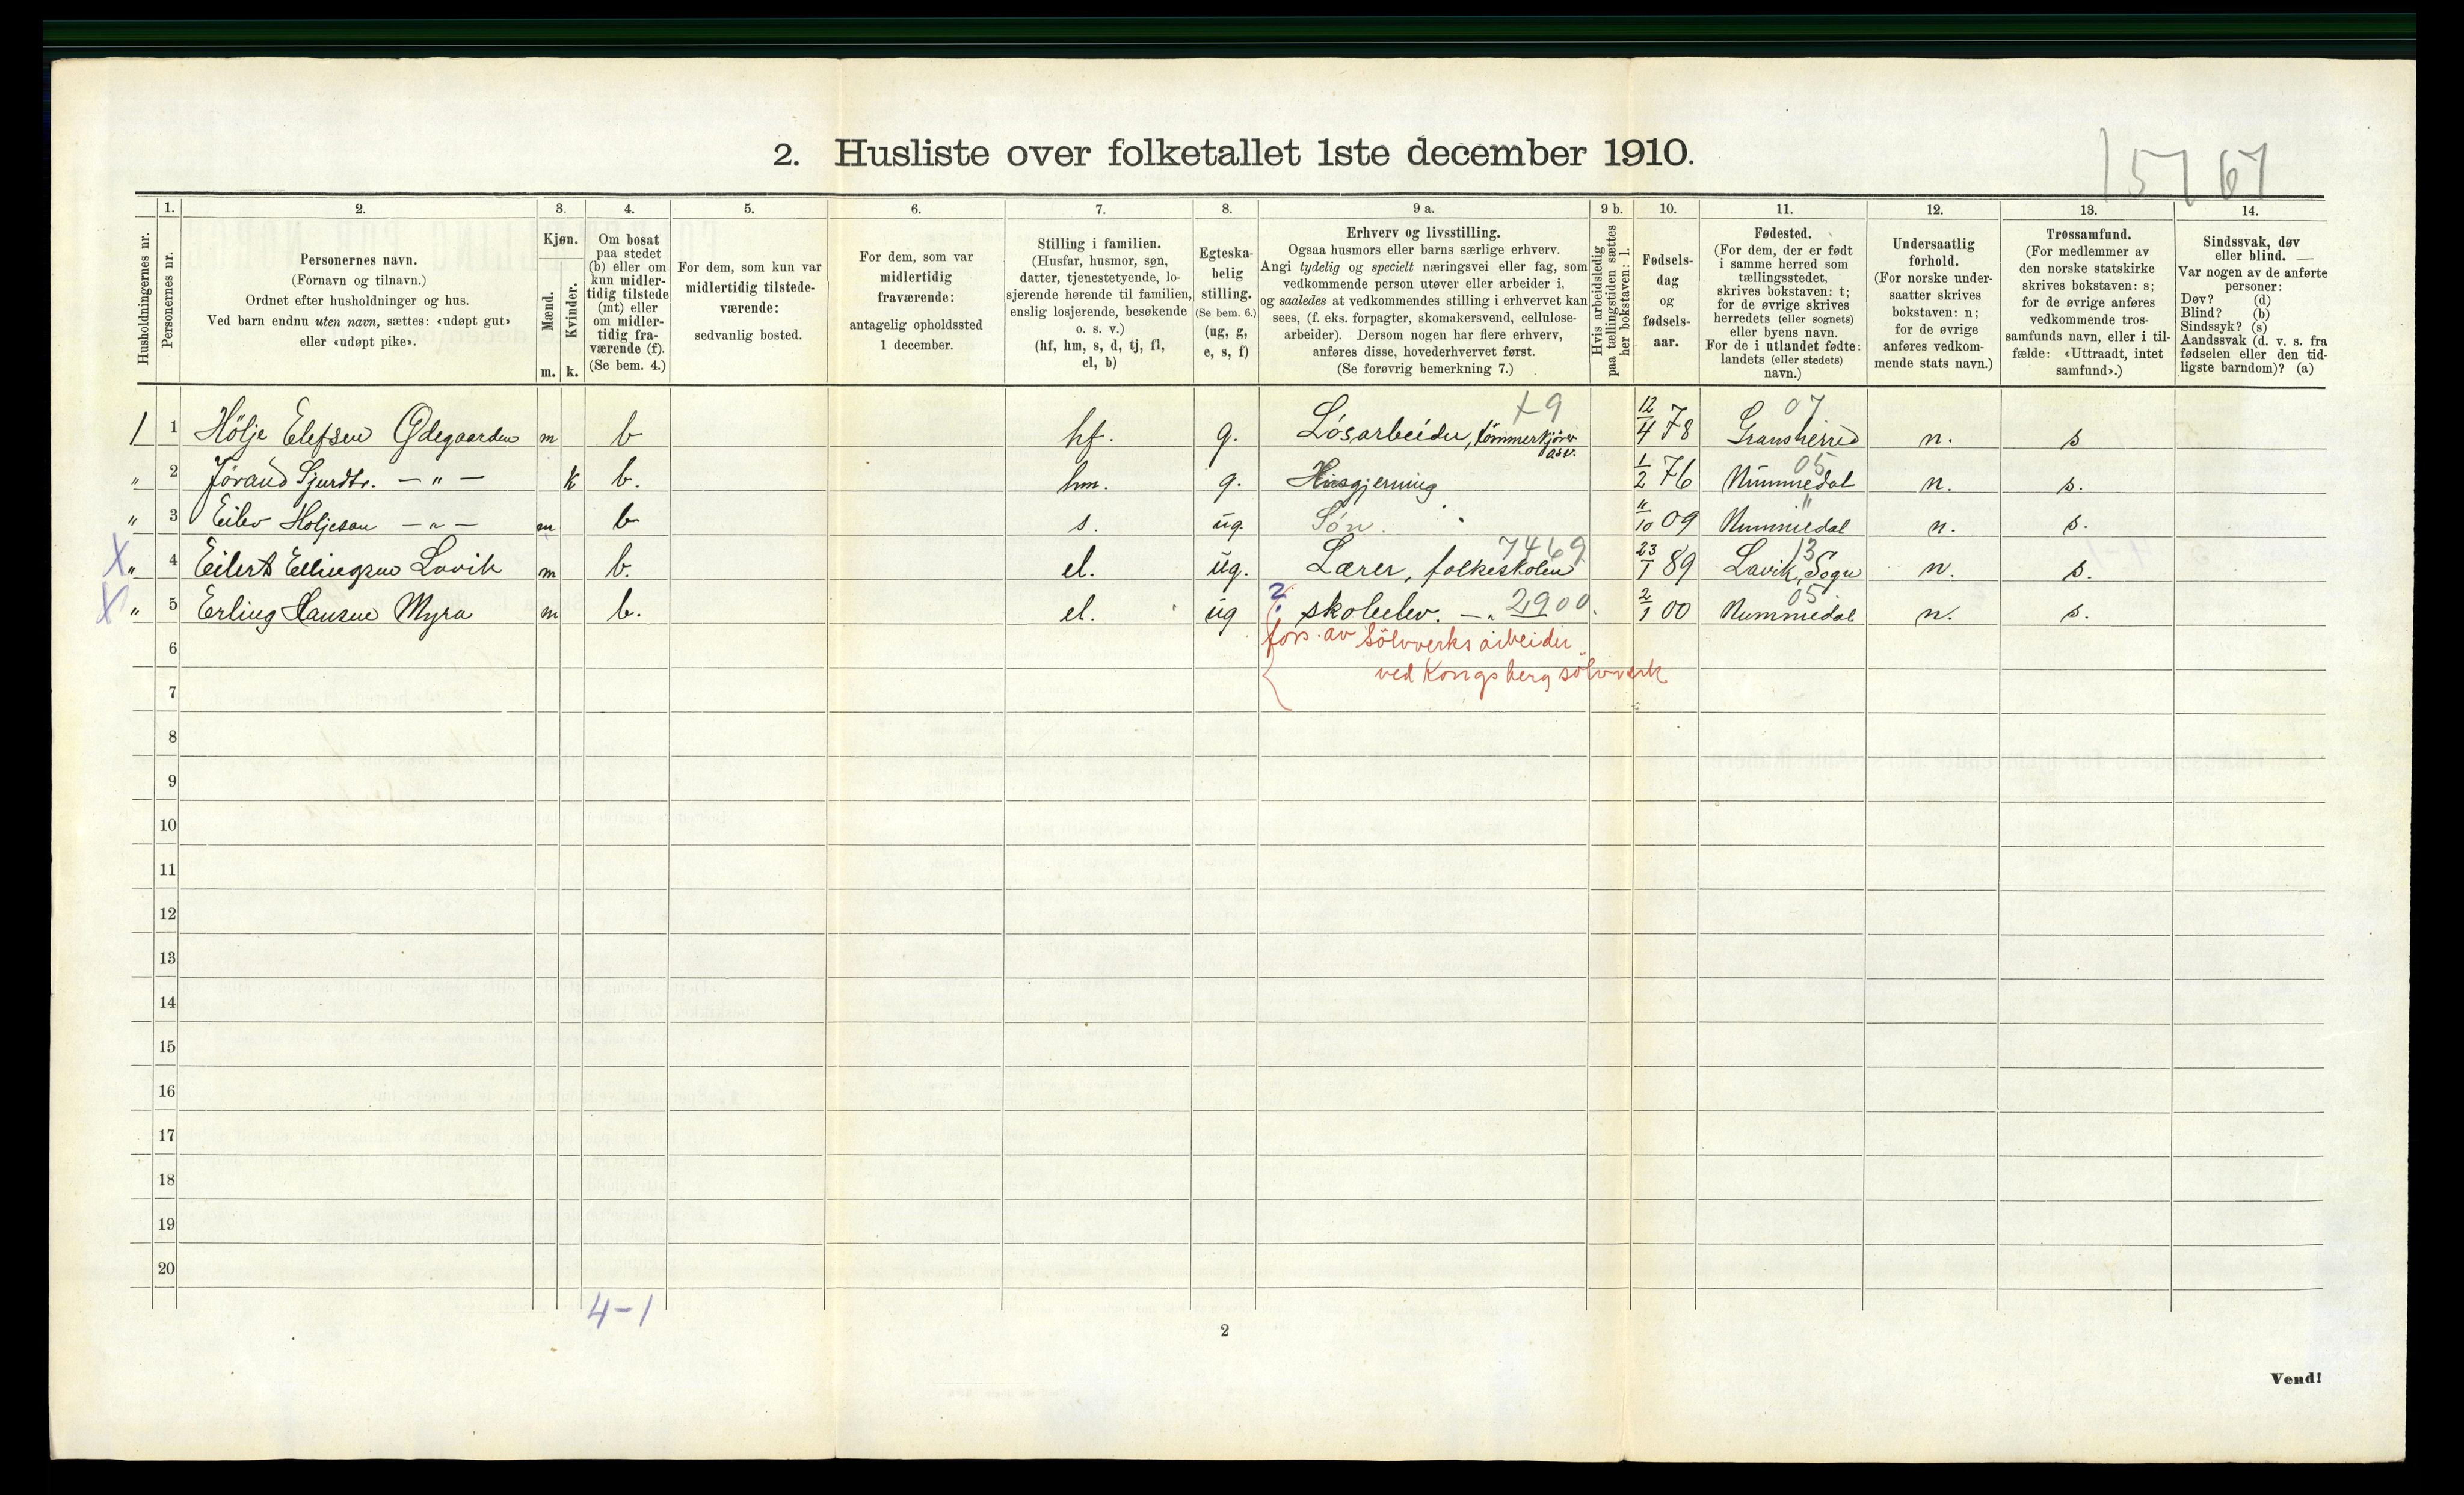 2. Husliste over folketallet 1ste december 1910.
15 67
1. 2. 3. 4. 5. 6. 7. 8. 9 a. 9 b. 10. 11. 12. 13. 14.
Husholdningernes nr.
Personernes nr.
Personernes navn.
(Fornavn og tilnavn.)
Ordnet efter husholdninger og hus.
Ved barn endnu uten navn, sættes: «udøpt gut»
eller «udøpt pike».
Kjøn.
Mænd.
Kvinder.
m. k.
Om bosat
paa stedet
(b) eller om
kun midler-
tidig tilstede
(mt) eller
om midler-
tidig fra-
værende (f).
(Se bem. 4.)
For dem, som kun var
midlertidig tilstede-
værende:
sedvanlig bosted.
For dem, som var
midlertidig
fraværende:
antagelig opholdssted
1 december.
Stilling i familien.
(Husfar, husmor, søn,
datter, tjenestetyende, lo-
sjerende hørende til familien,
enslig losjerende, besøkende
o. s. v.)
(hf, hm, s, d, tj, fl,
el, b)
Egteska-
belig
stilling.
(Se bem. 6.)
(ug, g,
e, s, f)
Erhverv og livsstilling.
Ogsaa husmors eller barns særlige erhverv.
Angi tydelig og specielt næringsvei eller fag, som
vedkommende person utøver eller arbeider i,
og saaledes at vedkommendes stilling i erhvervet kan
sees, (f. eks. forpagter, skomakersvend, cellulose-
arbeider). Dersom nogen har flere erhverv,
anføres disse, hovederhvervet først.
(Se forøvrig bemerkning 7.)
Hvis arbeidsledig
paa tællingstiden sættes
her bokstaven: l.
Fødsels-
dag
og
fødsels-
aar.
Fødested.
(For dem, der er født
i samme herred som
tællingsstedet,
skrives bokstaven: t;
for de øvrige skrives
herredets (eller sognets)
eller byens navn.
For de i utlandet fødte:
landets (eller stedets)
navn.)
Undersaatlig
forhold.
(For norske under-
saatter skrives
bokstaven: n;
for de øvrige
anføres vedkom-
mende stats navn.)
Trossamfund.
(For medlemmer av
den norske statskirke
skrives bokstaven: s;
for de øvrige anføres
vedkommende tros-
samfunds navn, eller i til-
fælde: «Uttraadt, intet
samfund».)
Sindssvak, døv
eller blind.
Var nogen av de anførte
personer:
Døv? (d)
Blind? (b)
Sindssyk? (s)
Aandssvak (d. v. s. fra
fødselen eller den tid-
ligste barndom)? (a)
+9 07
1 1 Hölje Elefsen Ødegaarden m b hf. g. Løsarbeider, tömmerkjörer osv. 12/4 78 Gransherred n. s
05
" 2 Jørand Sjurdtr. — " — k b. hm. g. Husgjerning 1/2 76 Nummedal n. s.
"
" 3 Eilev Holjesøn — " — m b s. ug. Søn. 11/10 09 Nummedal n. s.
7469 13
X " 4 Eilert Ellingsen Lavik m b. el. ug. Lærer, folkeskolen 23/1 89 Lavik, Sogn n. s.
2 05
X " 5 Erling Hansen Myra m b. el. ug ? skoleelev. — " 2900. 2/1 00 Nummedal n. s.
6 fors. av Sölvverksarbeider
7 ved Kongsberg sölvverk
8
9
10
11
12
13
14
15
16
17
18
19
20
4-1
2
Vend!